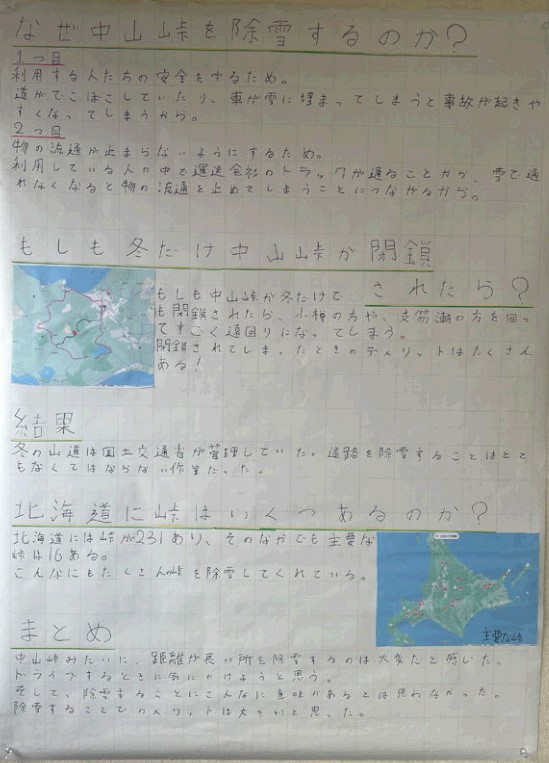 なぜ中山峠を除雪するのか?
1つ目
利用する人たちの安全を守るため。
道がでこぼこしていたり、車が雪に埋まってしまうと事故が起きや
すくなってしまうから。
2つ目
物の流通が止まらないようにするため。
利用している人の中で運送会社のトラックが通ることから、雪で通
れなくなると物の流通を止めてしまうことにつながるから。
もしも冬だけ中山峠が閉鎖
されたら?
もしも中山峠が冬だけで
も閉鎖されたら、小樽の方や、支笏湖の方を回っ
てすごく遠回りになってしまう。
閉鎖されてしまったときのディリットはたくさん
ある!
結果
冬の山道は国土交通省が管理していた。道路を除雪することはとて
もなくてはならない作業だった。
北海道に峠はいくつあるのか?
北海道には峠が231あり、そのなかでも主要な
峠は16ある。
こんなにもたくさん峠を除雪してくれている。
主要な峠
まとめ
中山峠みたいに、距離が長い所を除雪するのは大変だと感じた。
ドライブするときに気にかけようと思う。
そして、除雪することにこんなに意味があるとは思わなかった。
除雪することでのメリットは大きいと思った。